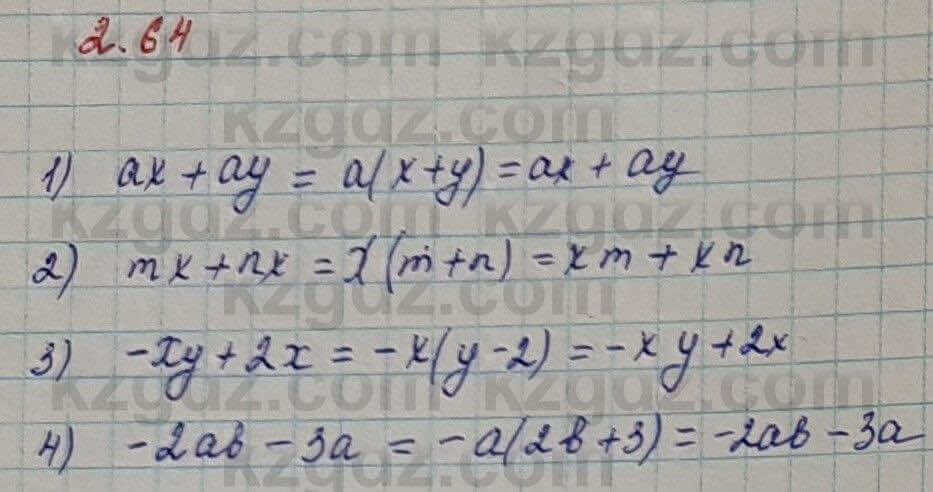 2.64
kzgdz.com kzgdz.com
kzgdz.com
1) ax + ay = a(x+y) = ax + ay
kzgdz.com kzgdz.com
2) mx + nx = x(m+n) = xm + xn
kzgdz.com
3) -xy + 2x = -x(y-2) = -xy + 2x
kzgdz.com kzgdz.com
4) -2ab - 3a = -a(2b+3) = -2ab - 3a
kzgdz.com